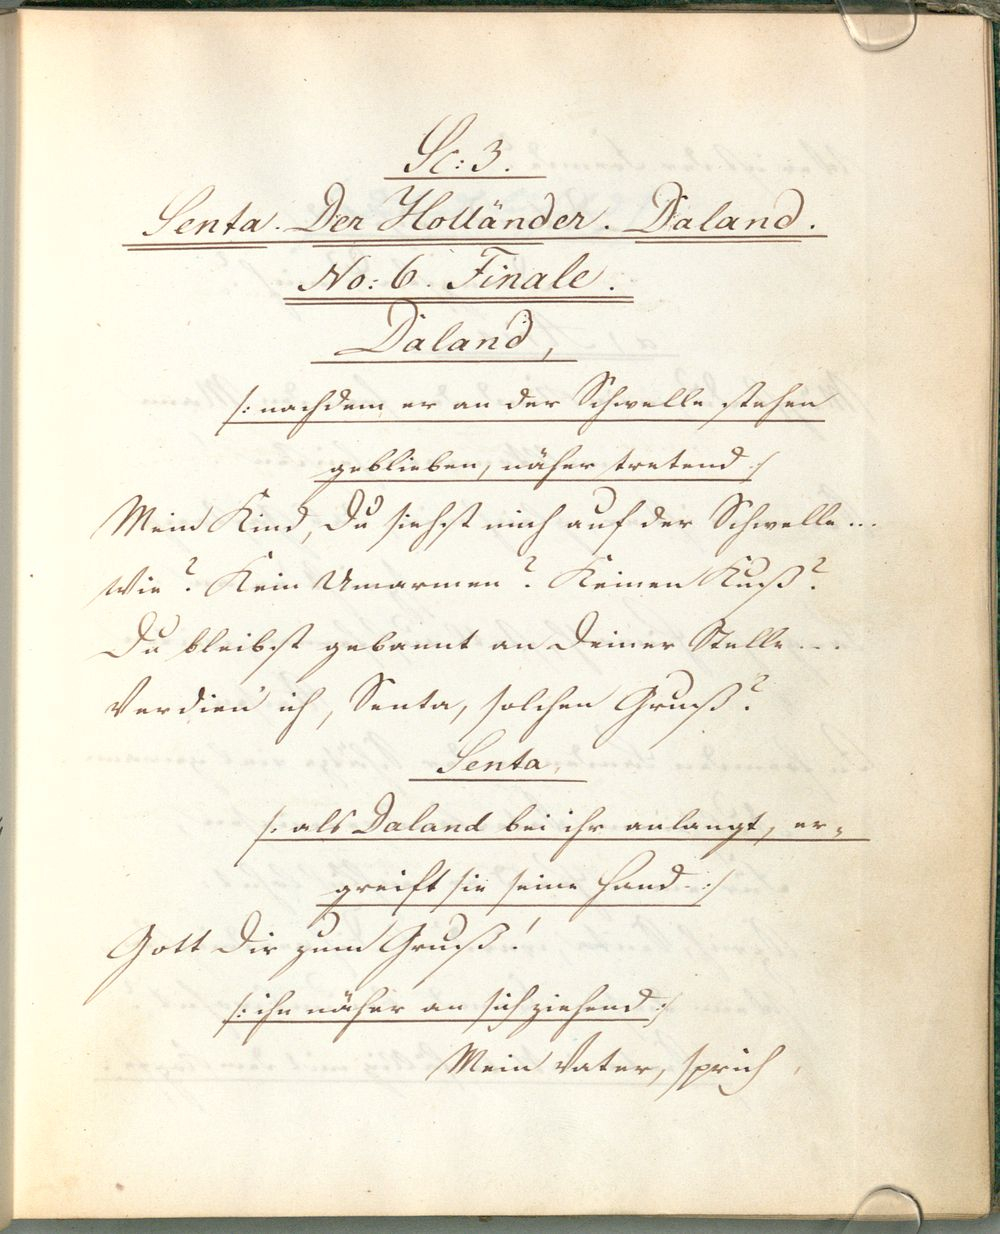 Sc: 3.
Senta. Der Holländer. Daland.
No: 6. Finale.
Daland,
/: nachdem er an der Schwelle stehen
geblieben, näher tretend :/
Mein Kind, Du siehst mich auf der Schwelle...
Wie? Kein Umarmen? Keinen Kuß?
Du bleibst gebannt an Deiner Stelle...
Verdien' ich, Senta, solchen Gruß?
Senta,
/: als Daland bei ihr anlangt, er-
greift sie seine Hand :/
Gott Dir zum Gruß!
/: ihn näher an sich ziehend :/
Mein Vater, sprich,